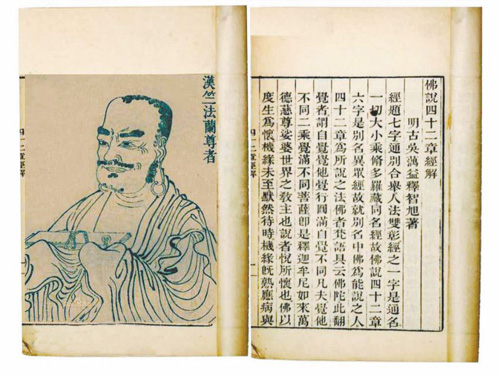 佛說四十二章經解
明古吳蕅益釋智旭著
經題七字通別合舉人法雙彰經之一字是通名
一切大小乘修多羅藏同名經故佛說四十二章
六字是別名異眾經故就別名中佛為能說之人
四十二章為所說之法佛者梵語具云佛陀此翻
覺者謂自覺覺他覺行圓滿自覺不同凡夫覺他
不同二乘覺滿不同菩薩卽是釋迦牟尼如來萬
德慈尊娑婆世界之教主也說者悅所懷也佛以
度生為懷機緣未至默然待時機緣旣熟應病與
漢竺法蘭尊者